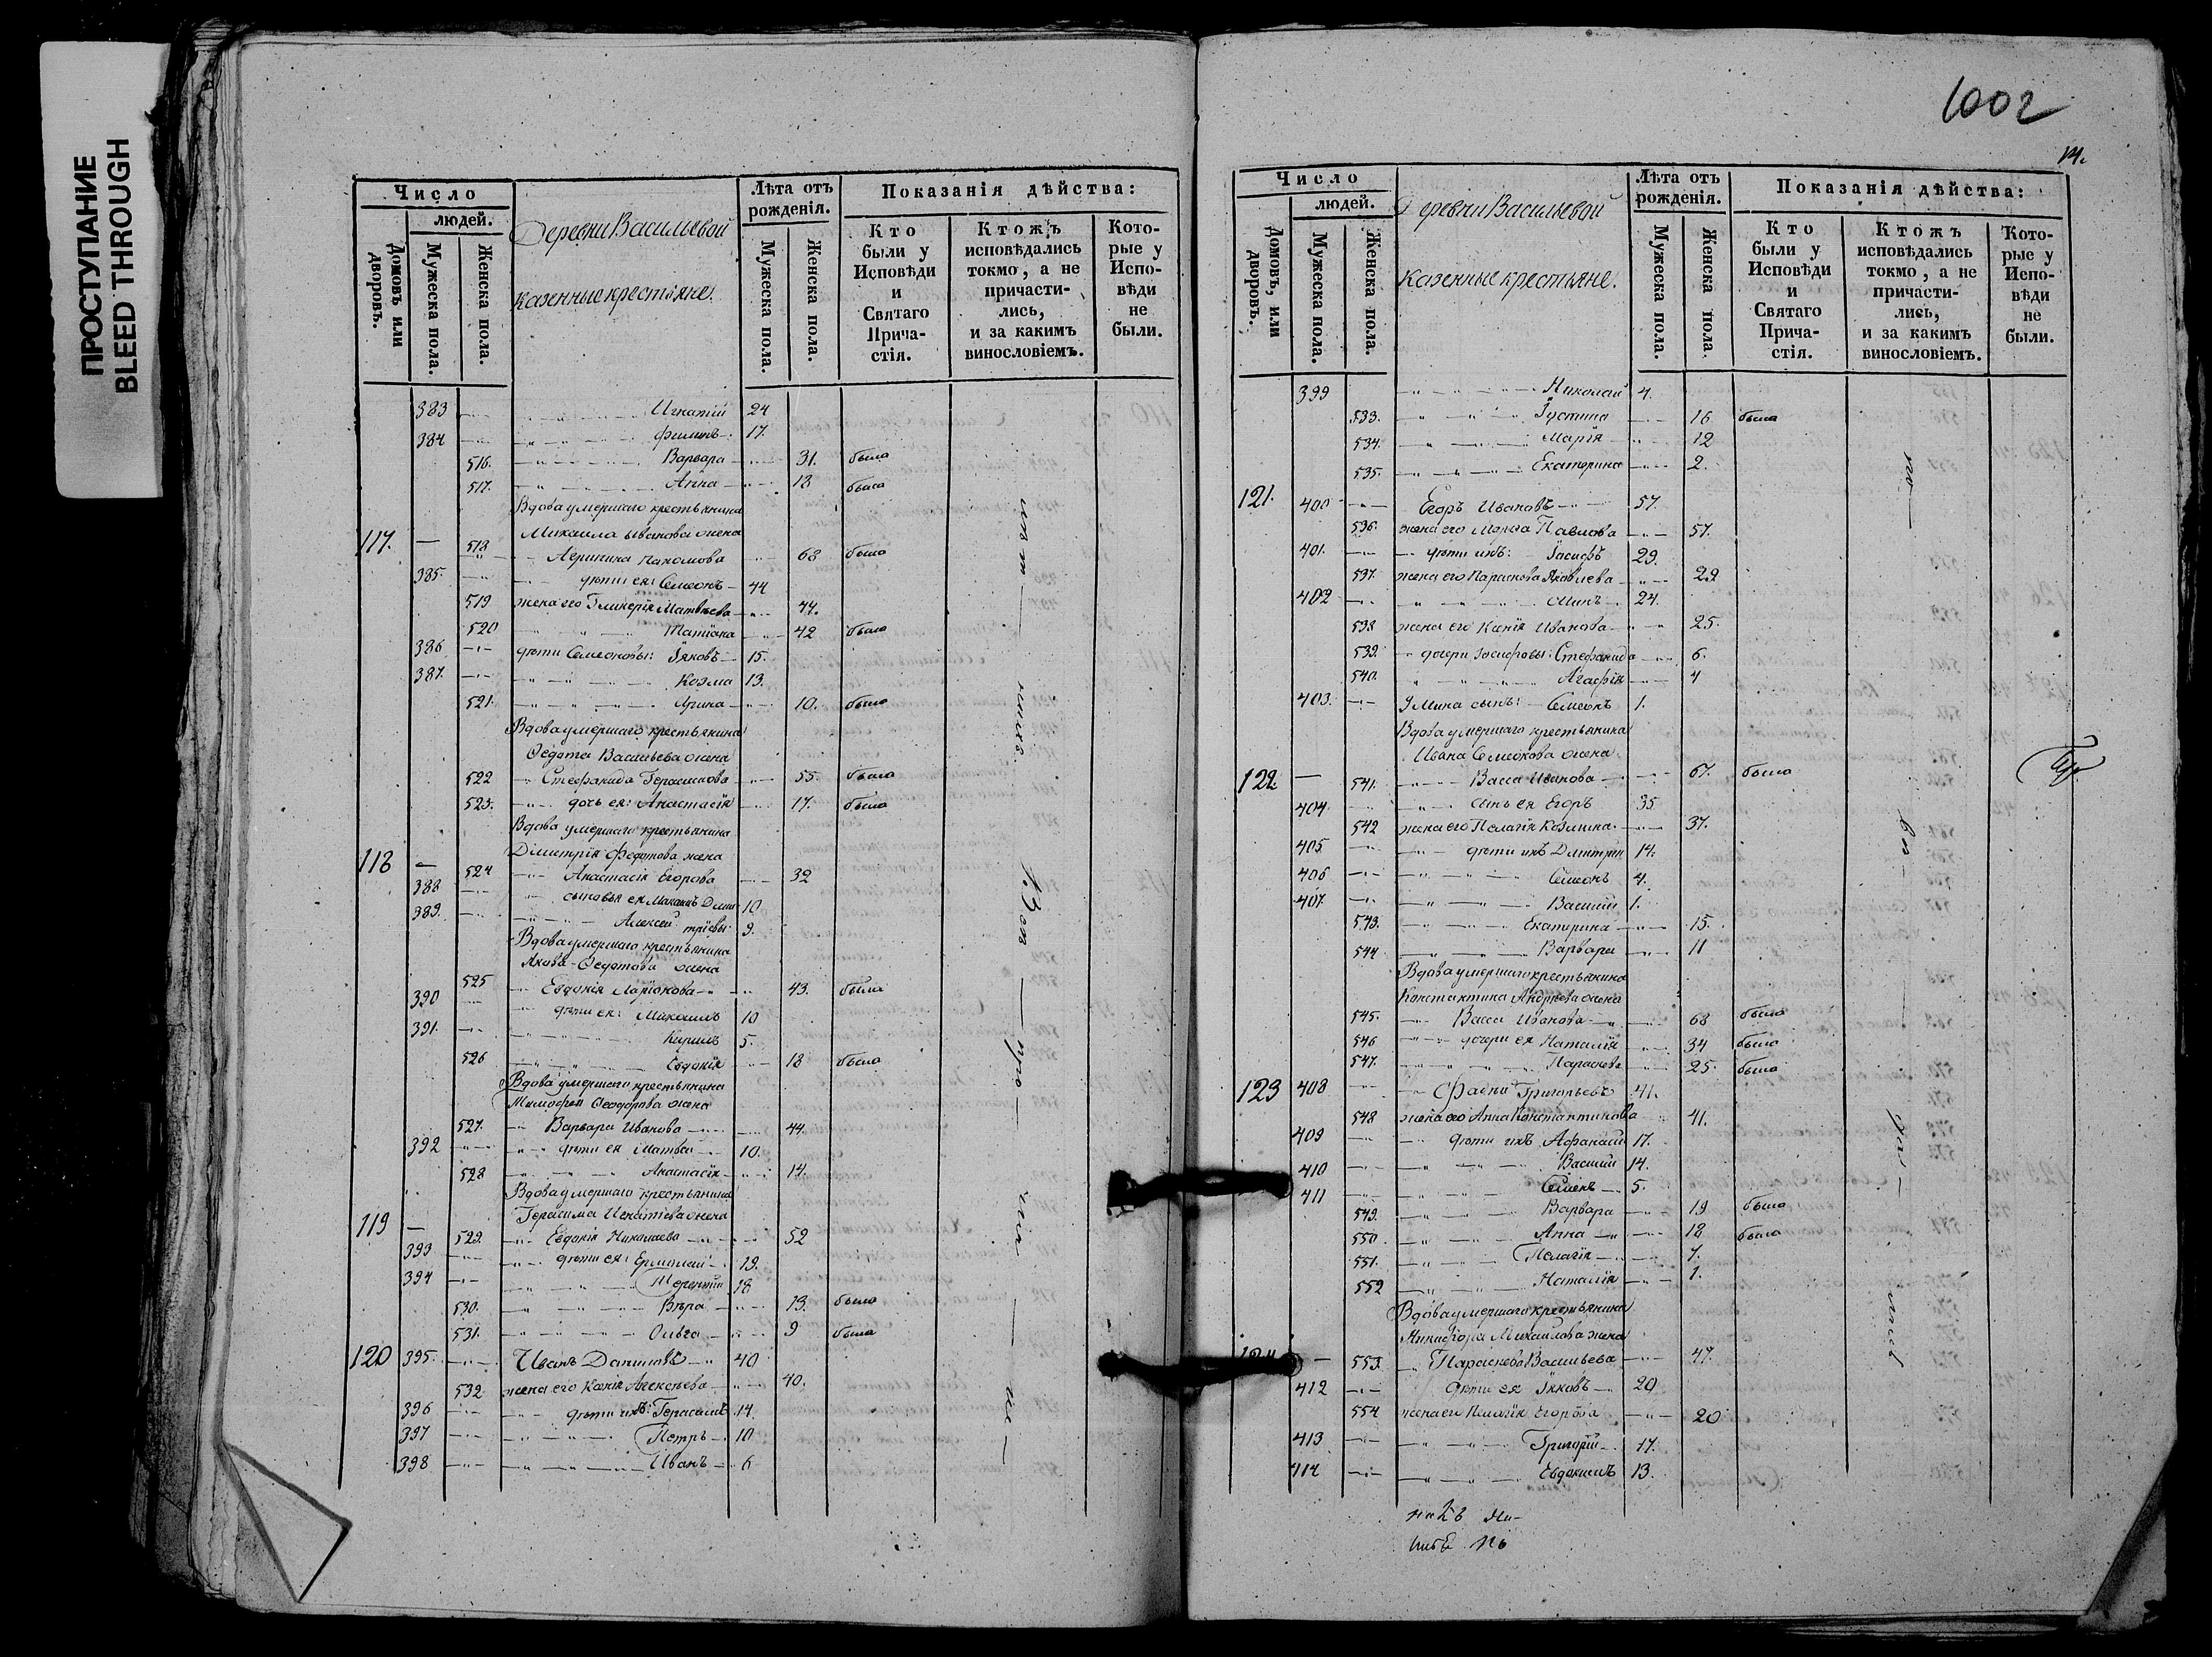 ПРОСТУПАНИЕ
BLEED THROUGH
Число
людей.
Домовъ или дворовъ.
Мужеска пола.
Женска пола.
Деревни Васильевой
казенные крестьяне.
Лѣта отъ рожденія.
Мужеска пола.
Женска пола.
Показанія дѣйства:
Кто были у Исповѣди и Святаго Прича-стія.
Ктожъ исповѣдались токмо, а не причасти-лись, и за какимъ винословіемъ.
Кото-рые у Испо-вѣди не были.
383 Игнатій 24
384 Филипъ 17.
516. Варвара 31. была
517. Анна 18 была
Вдова умершаго крестьянина
Михаила Иванова жена
117. — 518 Пахомова 68 была
385. дѣти ея: Семеонъ 44
519 жена его Гликерія Матвѣева 44.
520 Татіана 42 была
386 дѣти Семеоновы: Іяковъ 15.
387. Козма 13.
521. Ирина 10. была
Вдова умершаго крестьянина
Ѳедота Васильева жена
522 Стефанида Герасимова 55. была
523. дочь ея: Анастасія 17. была
Вдова умершаго крестьянина
Димитрія Федотова жена
118 — 524 Анастасія Егорова 32
388 сыновья ея Дими- 10
389. Алексей тріевы 9.
Вдова умершаго крестьянина
Якова Ѳедотова жена
525 Евдокія Ларіонова 43. была
390 дѣти ея: Михаилъ 10
391. Кирилъ 5.
526 Евдокія 18 была
Вдова умершаго крестьянина
Тимофея Ѳеодорова жена
527. Варвара Иванова 44.
392 дѣти ея Матвѣй 10.
528 Анастасія 14.
Вдова умершаго крестьянина
Герасима Игнатіева жена
119 — 529. Евдокія Николаева 52
393 дѣти ея: Ермолай 19.
394 Терентій 18
530. Вѣра 13. была
531. Ольга 9 была
120 395. Иванъ Даниловъ 40
532 жена его Ксенія Алексѣева 40.
396 дѣти ихъ: Герасимъ 14.
397 Петръ 10
398 Иванъ 6
1002
14.
Число
людей.
Домовъ, или дворовъ.
Мужеска пола.
Женска пола.
Деревни Васильевой
казенные крестьяне.
Лѣта отъ рожденія.
Мужеска пола.
Женска пола.
Показанія дѣйства:
Кто были у Исповѣди и Святаго Прича-стія.
Ктожъ исповѣдались токмо, а не причасти-лись, и за какимъ винословіемъ.
Кото-рые у Испо-вѣди не были.
399 Николай 4.
533. Іустина 16 была
534. Марія 12
535. Екатерина 2.
121. 400 Егоръ Ивановъ 57.
536. жена его Марѳа Павлова 57.
401. дѣти ихъ: Іосифъ 29.
537. жена его Параскова Яковлева 29
402 Минъ 24.
538 жена его Ксенія Иванова 25.
539. дочери Іосифовы: Стефанида 6.
540. Агафія 4
403. У Мина сынъ: Семеонъ 1.
Вдова умершаго крестьянина
Ивана Семеонова жена
122 — 541. Васса Иванова 67. была
404. сынъ ея Егоръ 35
542 жена его Пелагія Козмина 37.
405 дѣти ихъ Дмитрій 14.
406 Семеонъ 4.
407. Василій 1.
543. Екатерина 15.
544 Варвара 11
Вдова умершаго крестьянина
Константина Андрѣева жена
545. Васса Иванова 68 была
546 дочери ея Наталія 34 была
547. Параскова 25. была
123 408 Григорьевъ 41.
548 жена его Анна Константинова 41.
409 дѣти ихъ Афанасій 17.
410 Василій 14.
411 Семенъ 5.
549. Варвара 19 была
550 Анна 18 была
551. Пелагія 7.
552 Наталія 1.
Вдова умершаго крестьянина
Никифора Михаилова жена
124 — 553. Параскева Васильева 47.
412 дѣти ея Іяковъ 20
554 жена его Пелагія Егорова 20
413 Григорій 17.
414 Евдокимъ 13.